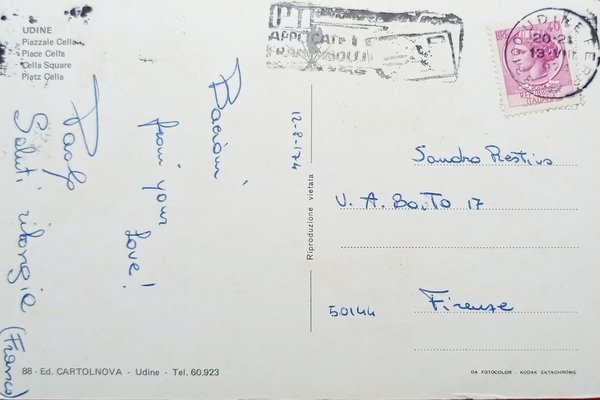 UDINE
Piazzale Cella
Place Cella
Cella Square
Platz Cella
Bacioni
from your
love!
Paolo
Saluti
(Franco)
12-8-174
Riproduzione vietata
PT
APPLICATE I
FRANCOBOLLI
UDINE FERR
20-21
13.VIII
40
Sandro Restivo
V. A. Boito 17
50144
Firenze
88 - Ed. CARTOLNOVA - Udine - Tel. 60.923
DA FOTOCOLOR - KODAK EKTACHROME